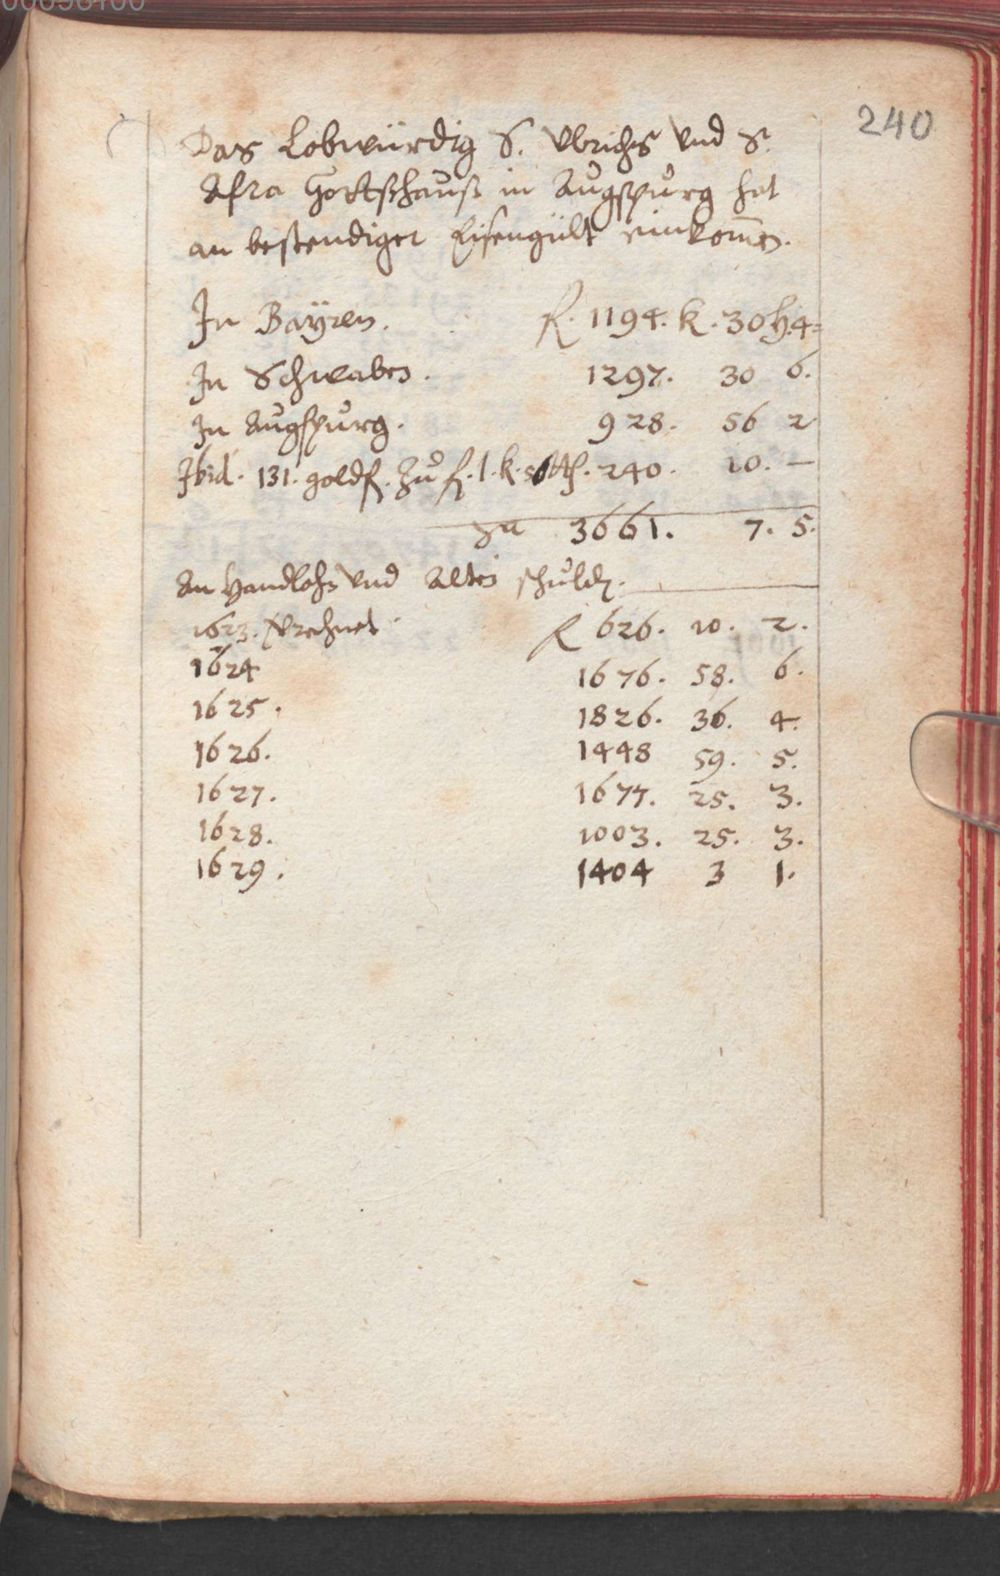 00098100
240
Das Lobwürdig S. Ulrichs und S.
Afra Gottßhauß in Augspurg hat
an bestendiger Eisengült einkom̅en.
In Bayren. fl. 1194. k. 30 h. 4
In Schwaben. 1297. 30 6.
In Augspurg. 928. 56 2
Ibid. 131. goldf. zu f. 1. k. 240. 10. —
zu 3661. 7. 5.
An Handlohn und Alten schulden.
1623. Verrechnet fl 626. 10. 2.
1624 1676. 58. 6.
1625. 1826. 36. 4.
1626. 1448 59. 5.
1627. 1677. 25. 3.
1628. 1003. 25. 3.
1629. 1404 3 1.